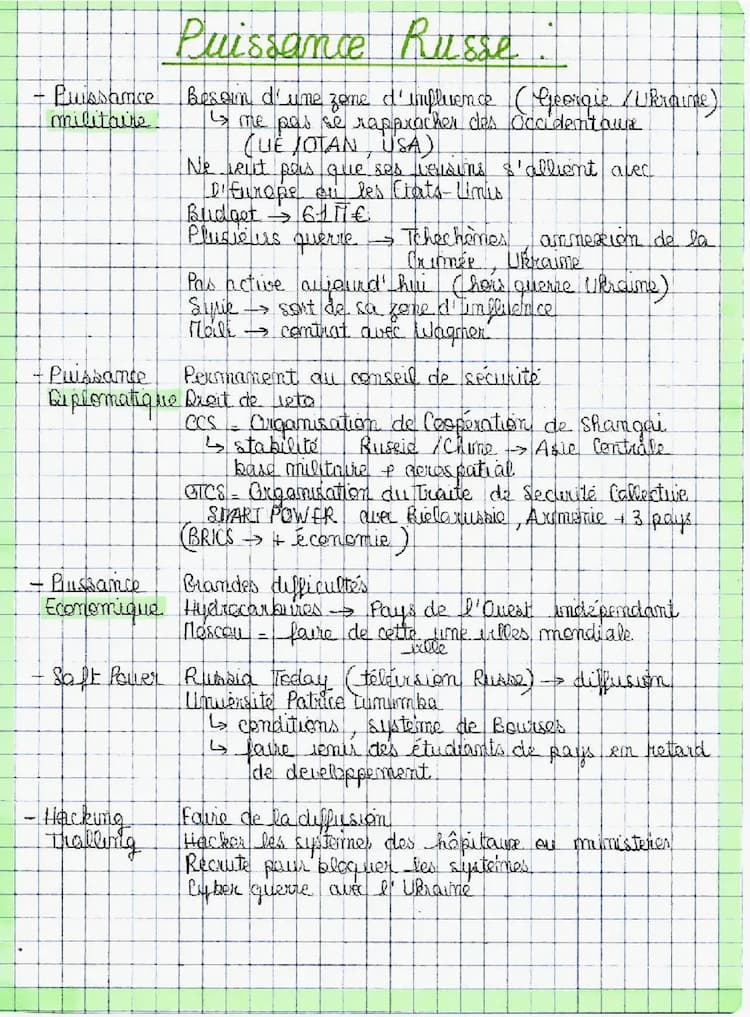 Puissance Russe :
- Puissance militaire
Besoin d'une zone d'influence (Georgie / Ukraine)
↳ me pas se rapprocher des Occidentaux
(UE / OTAN, USA)
Ne veut pas que ses voisins s'allient avec
l'Europe ou les Etats-Unis
Budget → 61 M €
Plusieurs guerre → Tchechèmes, annexion de la
Crimée, Ukraine
Pas active aujourd'hui (hors guerre Ukraine)
Syrie → sort de sa zone d'influence
Mali → contrat avec Wagner
- Puissance Diplomatique
Permanent au conseil de sécurité
Droit de veto
OCS = Organisation de Coopération de Shangai
↳ stabilité Russie / Chine → Asie Centrale
base militaire + aerospatial
OTCS = Organisation du Traite de Securité Collective
SMART POWER avec Biélorussie, Arménie + 3 pays
(BRICS → + économie)
- Puissance Economique
Grandes difficultés
Hydrocarbures → Pays de l'Ouest indépendant
Moscou = faire de cette une villes mondiale
ville
- Soft Power
Russia Today (télévision Russe) → diffusion
Université Patrice Lumumba
↳ conditions, système de Bourses
↳ faire venir des étudiants de pays en retard
de developpement
- Hacking
Tralling
Faire de la diffusion
Hacker les systèmes des hôpitaux ou ministères
Recrute pour bloquer les systèmes
Cyber guerre avec l'Ukraine